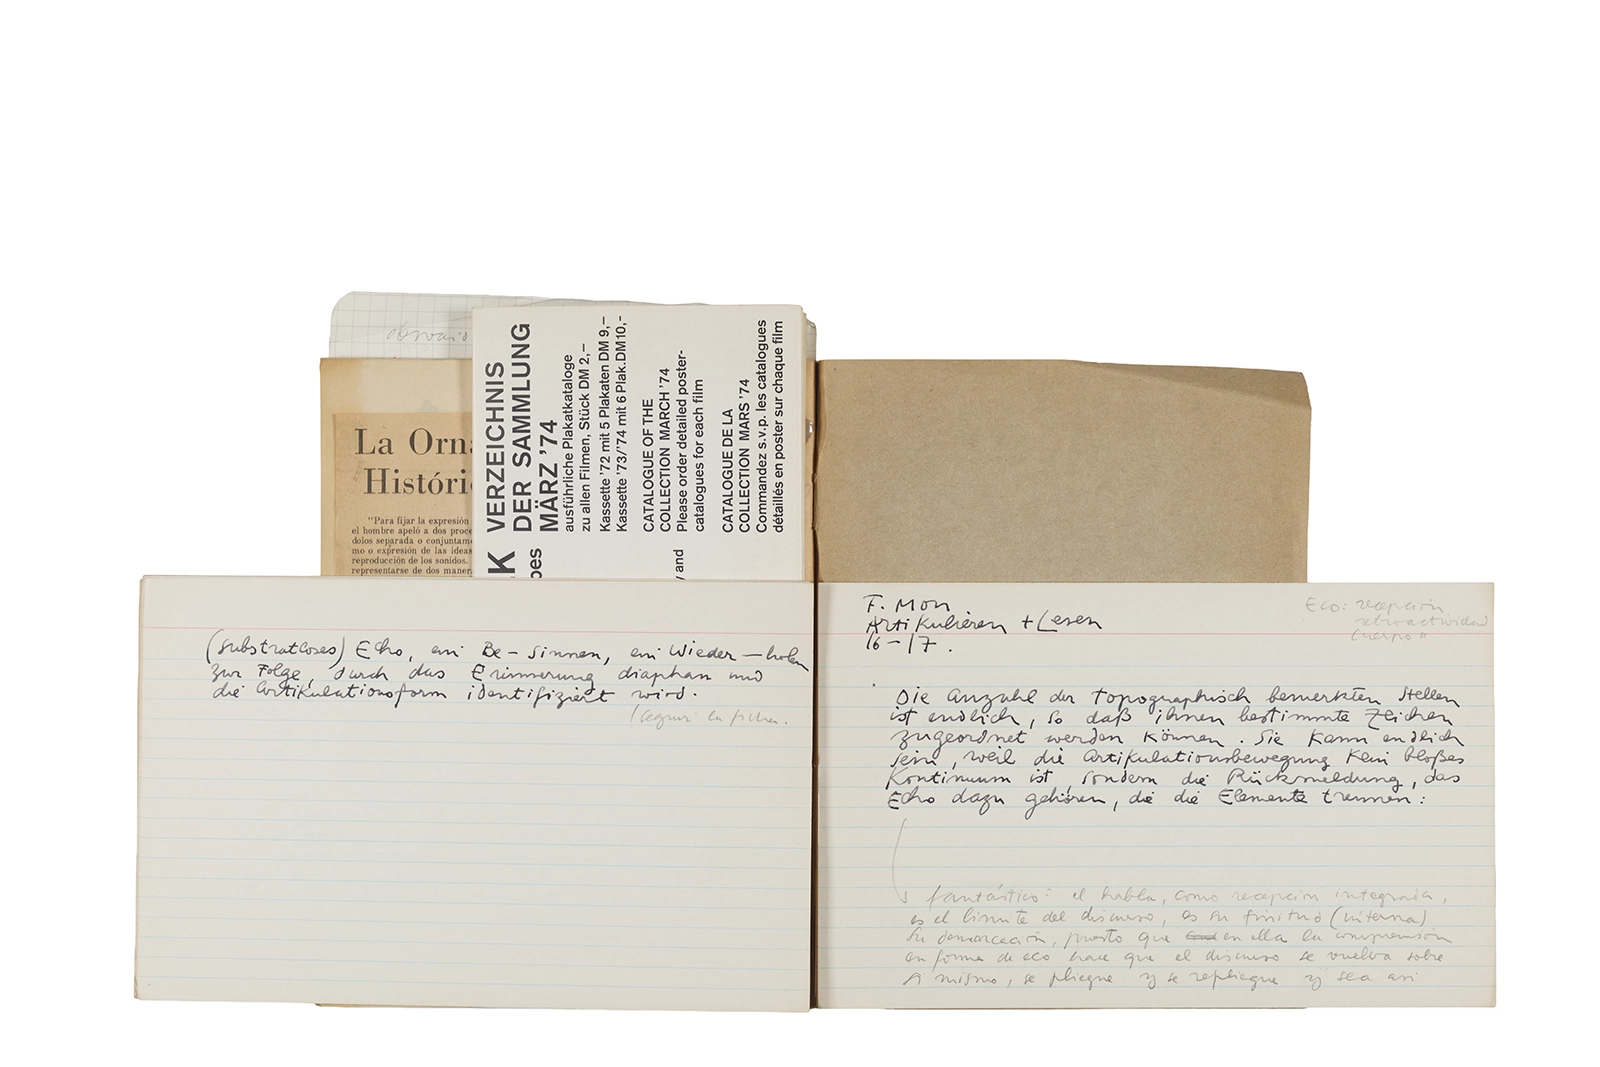 La Orn
Históri
"Para fijar la expresión
el hombre apeló a dos proce
dolos separada o conjuntame
mo o expresión de las ideas
reproducción de los sonidos.
representarse de dos maner
K VERZEICHNIS
DER SAMMLUNG
MÄRZ '74
ausführliche Plakatkataloge
zu allen Filmen, Stück DM 2,–
Kassette '72 mit 5 Plakaten DM 9,–
Kassette '73/'74 mit 6 Plak.DM10,–
CATALOGUE OF THE
COLLECTION MARCH '74
Please order detailed poster-
catalogues for each film
CATALOGUE DE LA
COLLECTION MARS '74
Commandez s.v.p. les catalogues
détaillés en poster sur chaque film
pes
and
(substratloses) Echo, ein Be-sinnen, ein Wieder-holen
zur Folge, durch das Erinnerung diaphan und
die Artikulationsform identifiziert wird.
(seguir la ficha.
F. Mon
Artikulieren + Lesen
16-17.
Eco: recepción
retroactividad
cuerpo"
Die Anzahl der topographisch bemerkten Stellen
ist endlich, so daß ihnen bestimmte Zeichen
zugeordnet werden können. Sie kann endlich
sein, weil die Artikulationsbewegung kein bloßes
Kontinuum ist, sondern die Rückmeldung, das
Echo dazu gehören, die die Elemente trennen:
fantástico: el habla, como recepción integrada,
es el límite del discurso, es su finitud (interna)
su demarcación, puesto que en ella la comprensión
en forma de eco hace que el discurso se vuelva sobre
sí mismo, se pliegue y se repliegue y sea así